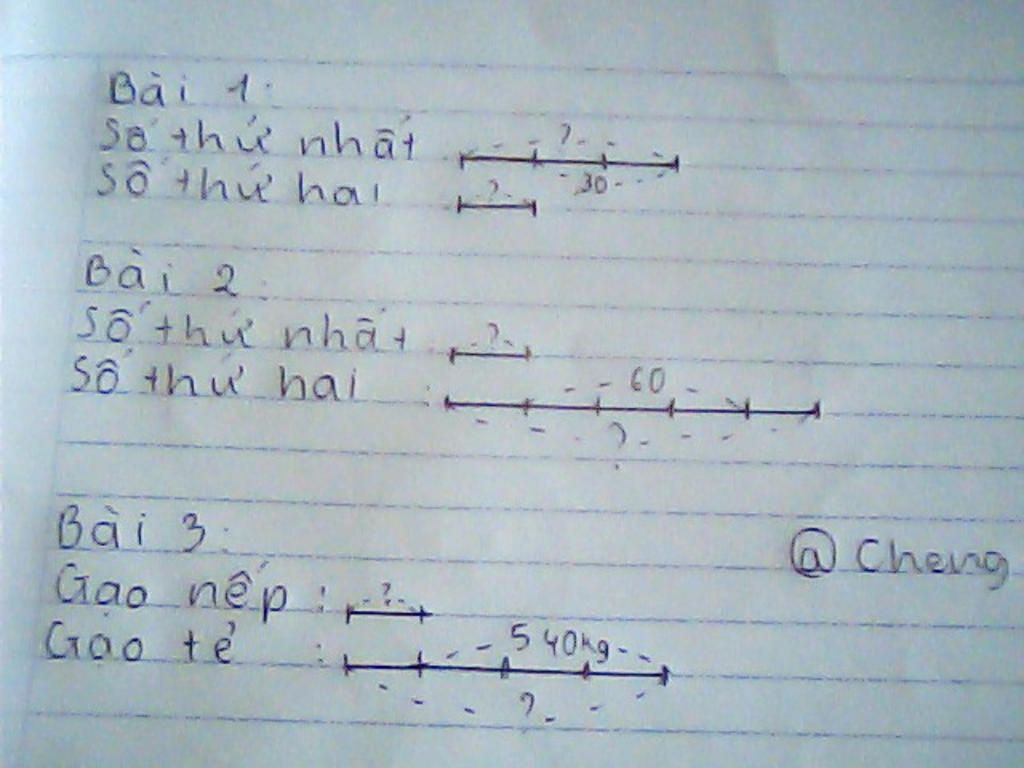 Bài 1:
Số thứ nhất ?
30
Số thứ hai ?
Bài 2:
Số thứ nhất ?
Số thứ hai : 60
?
Bài 3:
@ Cheng
Gạo nếp : ?
Gạo tẻ : 540kg
?